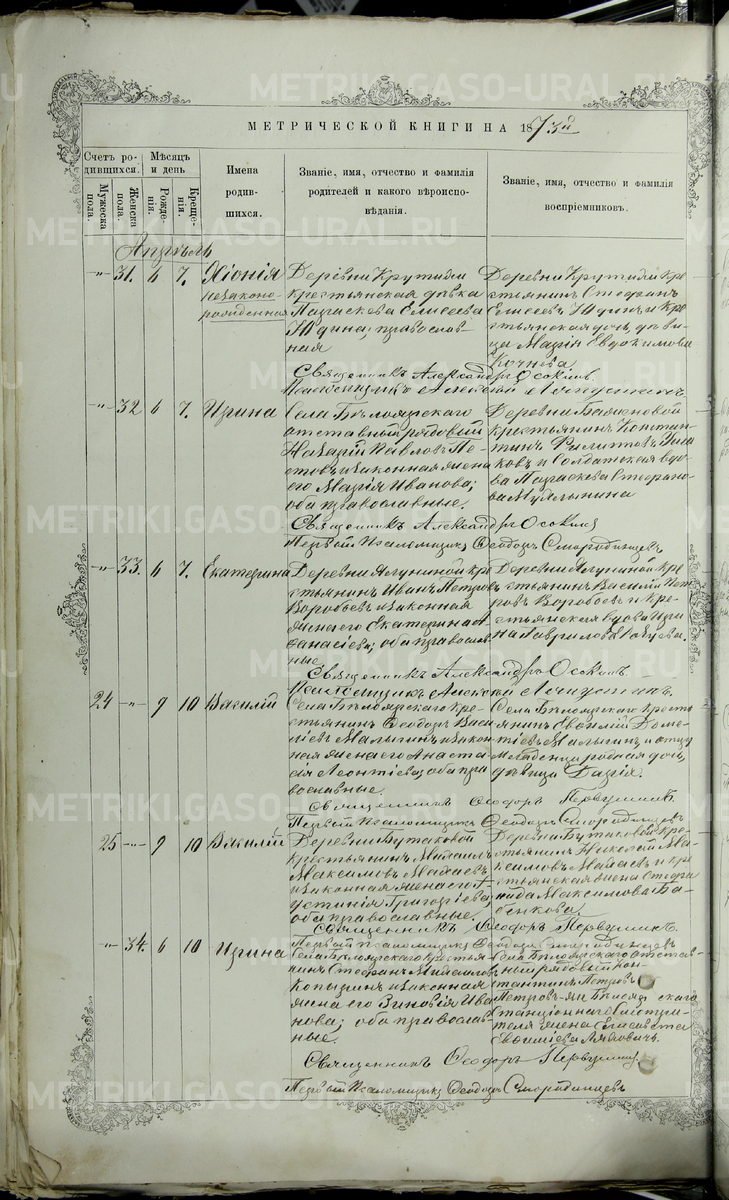 МЕТРИЧЕСКОЙ КНИГИ НА 1873й
Счетъ родившихся.
Мужеска пола.
Женска пола.
Мѣсяцъ и день
Рожденія.
Крещенія.
Имена родившихся.
Званіе, имя, отчество и фамилія родителей и какого вѣроисповѣданія.
Званіе, имя, отчество и фамилія воспріемниковъ.
Апрѣль
-"- 31. 6 7. Хіонія
незаконорожденная
Деревни Крутихи
крестьянская дѣвка
Параскева Елисеева
Юдина, православ-
ная
Деревни Крутихи кре-
стьянинъ Стефанъ
Елисеевъ Юдинъ и кре-
стьянская дочь дѣви-
ца Марія Евдокимова
Священникъ Александръ Осокинъ.
Псаломщикъ Алексѣй
-"- 32 6 7. Ирина
Села Бѣлоярскаго
отставный рядовый
Назарій Павловъ Пе-
стовъ и законная жена
его Марія Иванова;
оба православные.
Деревни Баженовой
крестьянинъ Констан-
тинъ Филитовъ
ковъ и Солдатская вдо-
ва Параскева Стефано-
ва
Священникъ Александръ Осокинъ
Первый Псаломщикъ Ѳеодоръ Смородинцевъ
-"- 33. 6 7. Екатерина
Деревни Ялуниной кре-
стьянинъ Иванъ Петровъ
Воробьевъ и законная
жена его Екатерина А-
ѳанасіева; оба православ-
ные
Деревни Ялуниной кре-
стьянинъ Василій Пет-
ровъ Воробьевъ и кре-
стьянская вдова Ири-
на Гаврилова
Священникъ Александръ Осокинъ.
Псаломщикъ Алексѣй
24 -"- 9 10 Василій
Села Бѣлоярскаго кре-
стьянинъ Ѳеодоръ Васи-
ліевъ Малыгинъ и закон-
ная жена его Анаста-
сія Леонтіева; оба пра-
вославные.
Села Бѣлоярскаго кресть-
янинъ Евѳимій Доме-
тіевъ Малыгинъ и отцу
младенца родная дочь,
дѣвица Дарія.
Священникъ Ѳеодоръ Первушинъ.
Первый Псаломщикъ Ѳеодоръ Смородинцевъ
25 -"- 9 10 Василій
Деревни Бутаковой
крестьянинъ Михаилъ
Максимовъ
и законная жена его
устинія Григоріева
оба православные.
Деревни Бутаковой кре-
стьянинъ Николай Ма-
ксимовъ и кре-
стьянская жена
Максимова Ба-
бенкова.
Священникъ Ѳеодоръ Первушинъ.
Первый псаломщикъ Ѳеодоръ Смородинцевъ
-"- 34. 6 10 Ирина
Села Бѣлоярскаго крестья-
нинъ Стефанъ Михаиловъ
Копыринъ и законная
жена его Зиновія Ива-
нова; оба православ-
ные.
Села Бѣлоярскаго отстав-
ный рядовый Кон-
стантинъ Петровъ
Петровъ и Бѣлоярскаго
Станціоннаго Смотри-
теля жена Елисавета
Евѳиміева
Священникъ Ѳеодоръ Первушинъ
Первый Псаломщикъ Ѳеодоръ Смородинцевъ
METRIKI.GASO-URAL.RU